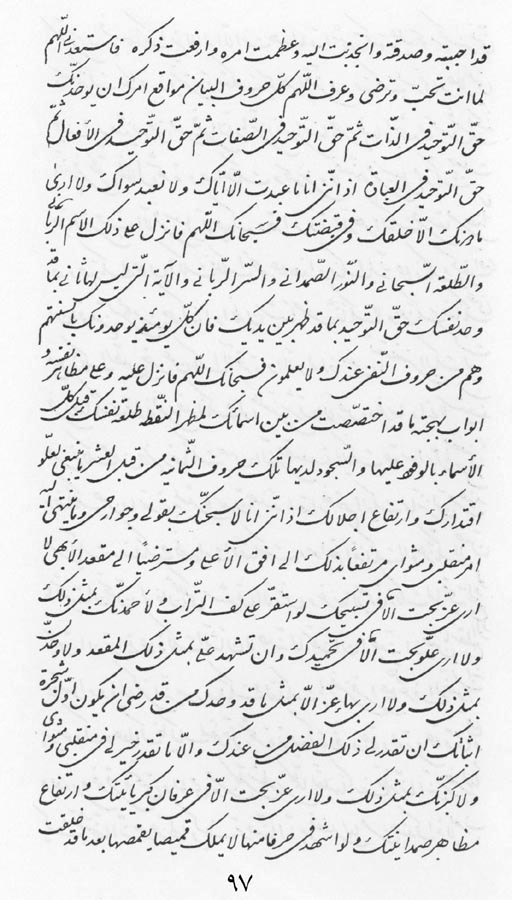 قد اجبته و صدقته و انجذبت اليه و عظمت امره و ارفعت ذكره فاستبعدنى اللهم
لما انت تحبّ و ترضى و عرف اللهم كلّ حروف البيان مواقع امرك ان يوحدنّك
حقّ التّوحيد فى الذّات ثمّ حقّ التّوحيد فى الصّفات ثمّ حقّ التّوحيد فى الأفعال ثمّ
حقّ التّوحيد فى العبادة اذ انّنى انا ما عبدت الّا ايّاك ولا نعبد سواك ولا ارى
ما دونك الّا خلقك و فى قبضتك فسبحانك اللّهم فانزل على ذلك الاسم الربّانى
و الطّلعة السّبحانى و النّور الصّمدانى و السّر الرّبانى و الآية الّتى ليس لها ثانى بما قد
وحد نفسك حقّ التّوحيد بما قد ظهر بين يديك فان كلّ يومئذ يوحدونك بالسنتهم
و هم من حروف النّفى عندك و لا يعلمون فسبحانك اللّهم فانزل عليه و على مظاهر نفسه و
ابواب بهجته ما قد اختصّصت من بين اسمائك لمظهر النّقطه طلعة نفسك قبل كلّ
الأسماء بالوفود عليها و السّجود لديها تلك حروف الثّمانيه من قبل العشر ما ينبغى لعلّو
اقتدارك و ارتفاع اجلالك اذ انّنى انا لاسبحنّك بقولى و جوارحى و ما ينتهى اليه
امر منقلبى و مثواى مرتفعاً بذلك الى افق الأعلى و مسترضياً الى مقعد الأبهى لا
ارى عزّ بحت الّا فى تسبيحك لو استقرّ على كف التّراب و لاحمدنّك بمثل ذلك
ولا ارى علّو بحت الّا فى تحميدك و ان تشهد علىّ بمثل ذلك المقعد و لاوحدنّ
بمثل ذلك ولا ارى بهاء عزّ الّا بمثل ما قد وحدك من قد رضى ان يكون اوّل شجرة
اثباتك ان تقدر لى ذلك الفضل من عندك و الّا ما تقدر خير لى فى منقلبى و مثواى
و لاكبرنّك بمثل ذلك ولا ارى عزّ بحت الّا فى عرفان كبريائيّتك و ارتفاع
مظاهر صمدانيّتك و لو اشهد فى حرفا منها لا يملك قميصا يقمصها بعد ما قد خلقت
٩٧